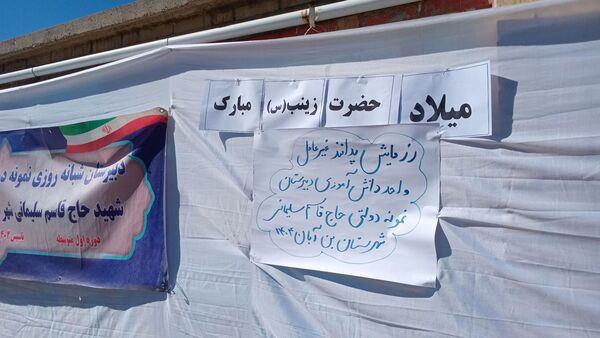 میلاد حضرت زینب(س) مبارک
رزمایش پدافند غیرعامل
واحد دانش آموزی دبیرستان
نمونه دولتی حاج قاسم سلیمانی
شهرستان بن آبان ۱۴۰۴
دبیرستان شبانه روزی نمونه د
شهید حاج قاسم سلیمانی شهر
دوره اول متوسطه
تاسیس ۱۴۰۳